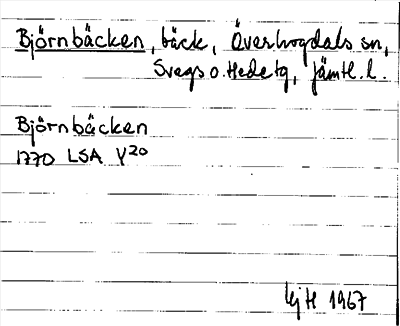 Björnbäcken, bäck, Överhogdals sn,
Svegs o. Hede tg, Jämtl. l.
Björnbäcken
1770 LSA Y20
1967